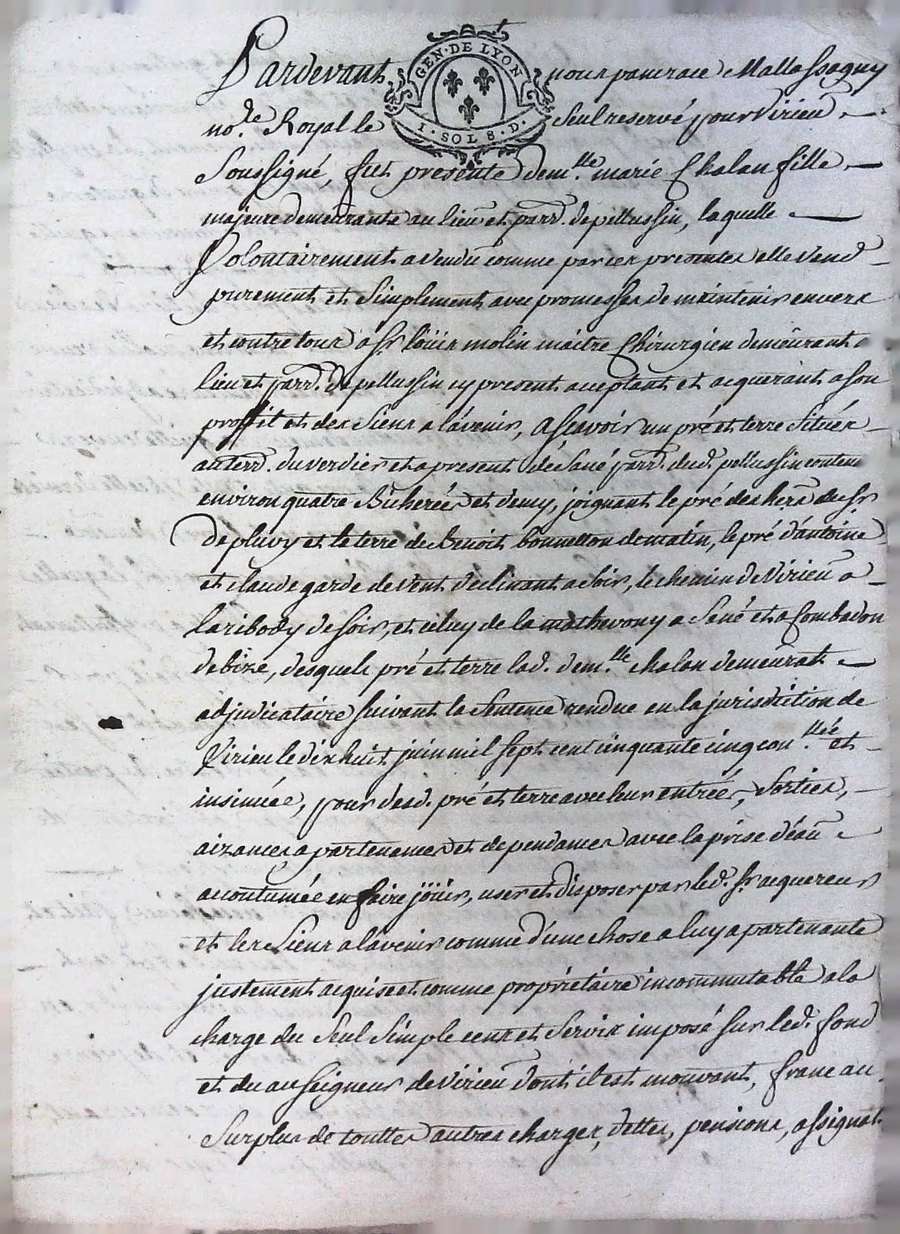 GEN. DE LYON
1 . SOL 8 . D .
Pardevant nous pancrace Mallassagny
no.re Royal le Seul reservé pour Virieu
Soussigné, fut presente dem.lle marie Chalan fille
majeure demeurante au lieu et parr. de pellussin, laquelle
Volontairement a vendu comme par ces presentes elle vend
purement et simplement avec promesses de maintenir envers
et contre tous a Sr. Loüis molin maitre Chirurgien demeurant a
lieu et parr. de pellussin cy present aceptant et aquerant a son
proffit et des Siens a l'avenir, a scavoir un pré et terre situés
au terr. du verdier et a present de Sané parr. dud. pellussin contena
environ quatre Bicherées et demy, joignant le pré des hers. du Sr.
de pluvy et le terre de Benoit bonnetton de matin, le pré d'antoine
et claude garde de vent declinant a soir, le chemin de Virieu a
laribody de soir, et celuy de la a Sané et a Combadon
de bize, desquels pré et terre lad. dem.lle chalan demeurat
adjudicataire suivant la Sentence rendue en la jurisdiction de
Virieu le dix huit juin mil sept cent cinquante cinq et
insinuée, pour desd. pré et terre avec leur entrée, Sorties,
aizances apartenances et dependances avec la prise d'eau
acoutumée en faire joüir, user et disposer par led. Sr. aquereur
et les Siens a l'avenir comme d'une chose a luy apartenante
justement aquise et comme propriétaire incommutable a la
charge du Seul Simple cens et Servis imposé sur led. fond
et du au Seigneur de Virieu dont il est mouvant, franc au
Surplus de touttes autres charges, dettes, pensions, assignat